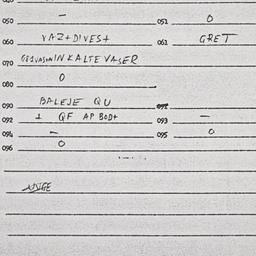 050 - 051 0
060 VAZ+DIVES+ 061 GRET
070 KALTE VASER
080 0
090 BALEJE QU
092 1 QF AP BOD+ 093 -
094 - 095 0
096 0